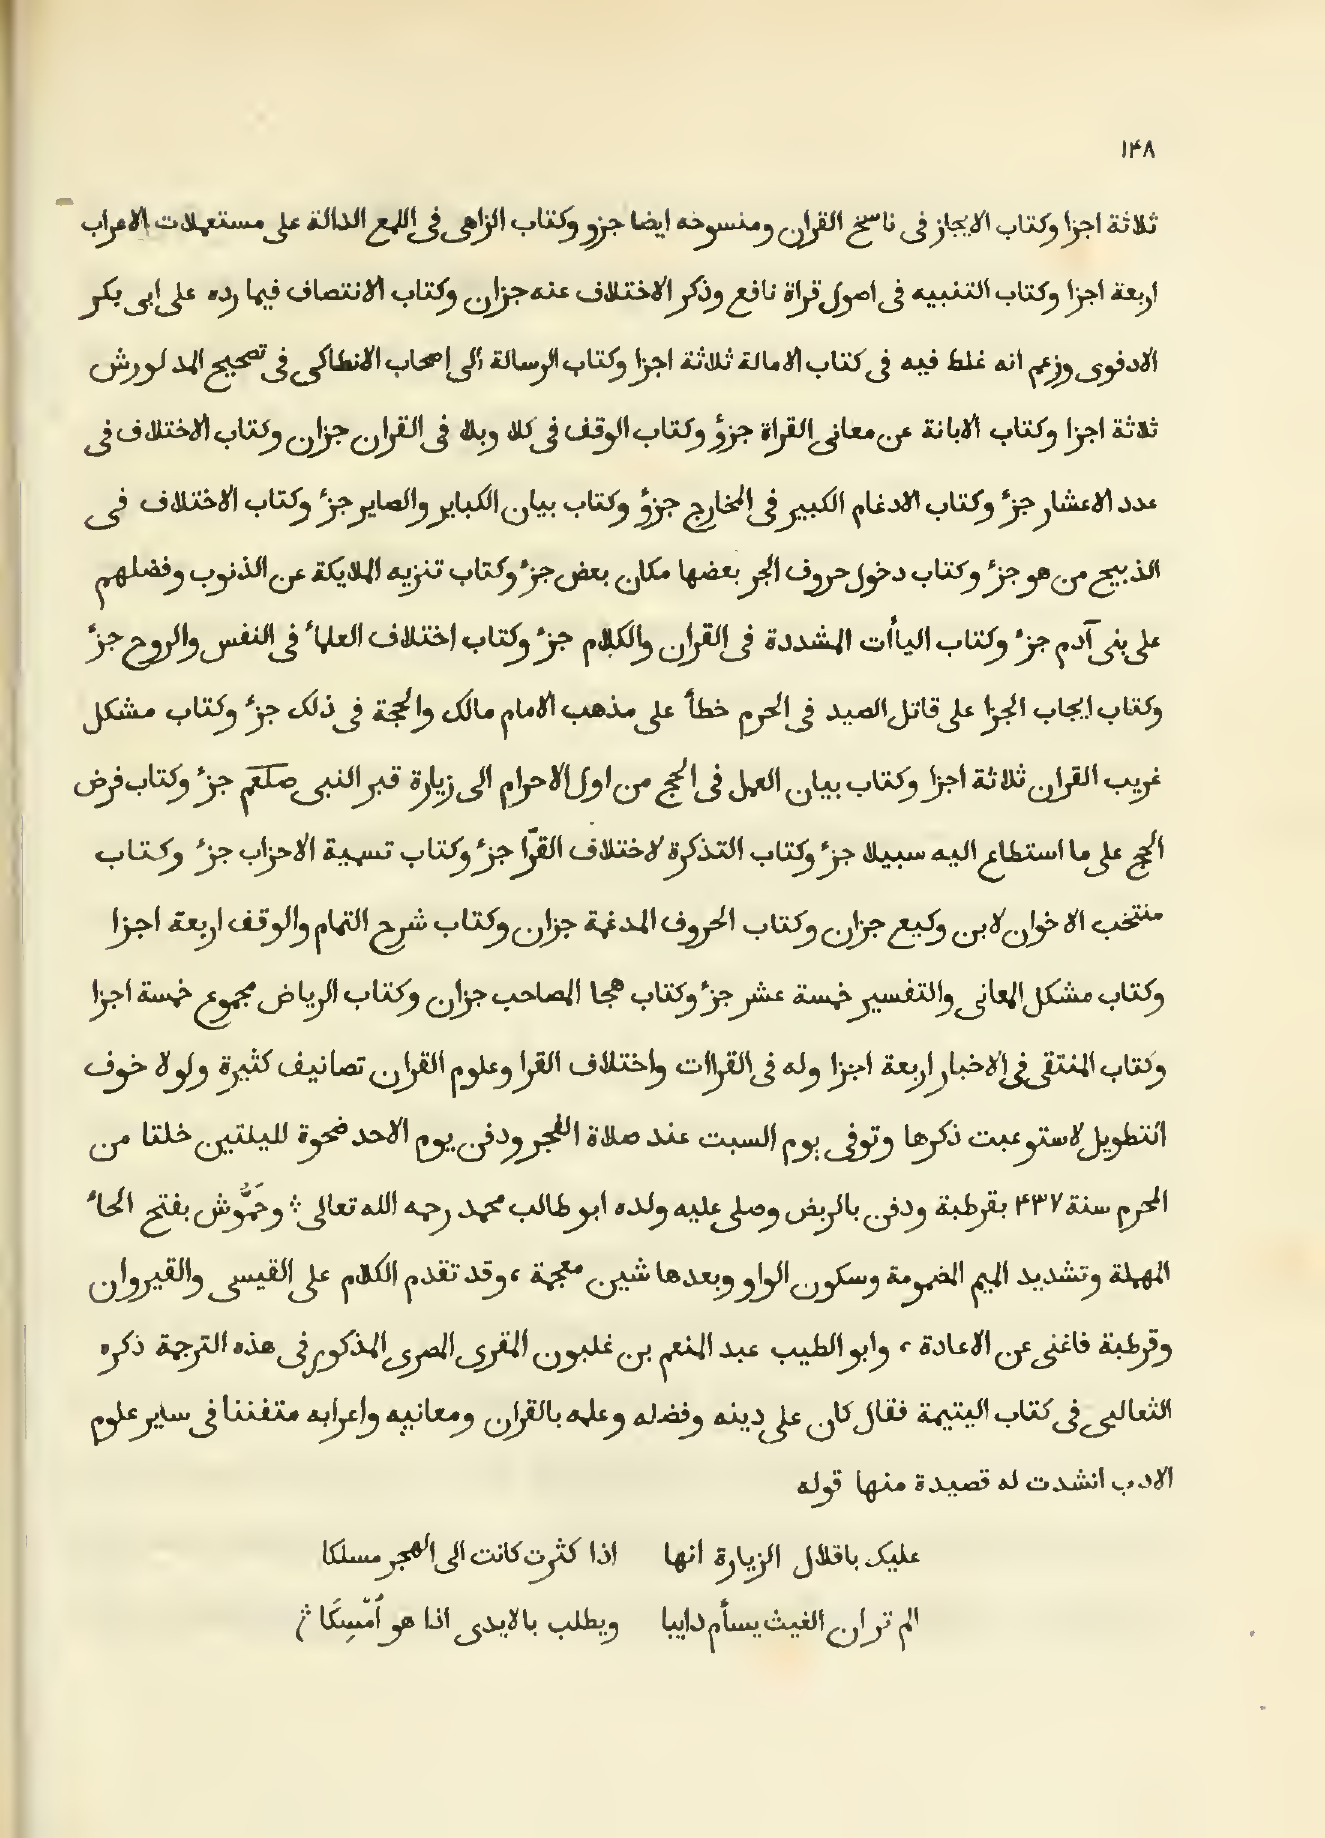 ۱۴۸
ثلاثة اجزا وكتاب الايجاز فى ناسخ القران ومنسوخه ايضا جزو وكتاب الزاهى فى اللمع الدالة على مستعملات الاعراب
اربعة اجزا وكتاب التنبيه فى اصول قراة نافع وذكر الاختلاف عنه جزان وكتاب الانتصاف فيما رده على ابى بكر
الادفوى وزعم انه غلط فيه فى كتاب الامالة ثلاثة اجزا وكتاب الرسالة الى اصحاب الانطاكى فى تصحيح المد لورش
ثلاثة اجزا وكتاب الابانة عن معانى القراة جزؤ وكتاب الوقف فى كلا وبلا فى القران جزان وكتاب الاختلاف فى
عدد الاعشار جزء وكتاب الادغام الكبير فى المخارج جزؤ وكتاب بيان الكباير والصاير جزء وكتاب الاختلاف فى
الذبيح من هو جزء وكتاب دخول حروف الجر بعضها مكان بعض جزء وكتاب تنزيه الملايكة عن الذنوب وفضلهم
على بنى آدم جزء وكتاب اليأات المشددة فى القران والكلام جزء وكتاب اختلاف العلماء فى النفس والروح جزء
وكتاب ايجاب الجزا على قاتل الصيد فى الحرم خطأ على مذهب الامام مالك والحجة فى ذلك جزء وكتاب مشكل
غريب القران ثلاثة اجزا وكتاب بيان العمل فى الحج من اول الاحرام الى زيارة قبر النبى صلعم جزء وكتاب فرض
الحج على ما استطاع اليه سبيلا جزء وكتاب التذكرة لاختلاف القرّا جزء وكتاب تسمية الاحزاب جزء وكتاب
منتخب الاخوان لابن وكيع جزان وكتاب الحروف المدغمة جزان وكتاب شرح التمام والوقف اربعة اجزا
وكتاب مشكل المعانى والتفسير خمسة عشر جزء وكتاب هجا المصاحب جزان وكتاب الرياض مجموع خمسة اجزا
وكتاب المنتقى فى الاخبار اربعة اجزا وله فى القراات واختلاف القرا وعلوم القران تصانيف كثيرة ولولا خوف
التطويل لاستوعبت ذكرها وتوفى يوم السبت عند صلاة الفجر ودفن يوم الاحد ضحوة لليلتين خلتا من
المحرم سنة ۴۳۷ بقرطبة ودفن بالربض وصلى عليه ولده ابو طالب محمد رحمه الله تعالى ؞ وحَمُّوش بفتح الحاء
المهملة وتشديد الميم المضمومة وسكون الواو وبعدها شين معجمة ، وقد تقدم الكلام على القيسى والقيروان
وقرطبة فاغنى عن الاعادة ، وابو الطيب عبد المنعم بن غلبون المقرى المصرى المذكور فى هذه الترجمة ذكره
الثعالبى فى كتاب اليتيمة فقال كان على دينه وفضله وعلمه بالقران ومعانيه واعرابه متفننا فى ساير علوم
الادب انشدت له قصيدة منها قوله
عليك باقلال الزيارة انها اذا كثرت كانت الى الهجر مسلكا
الم تر ان الغيث يسأم دايبا ويطلب بالايدى اذا هو اُمْسِكَا ؞